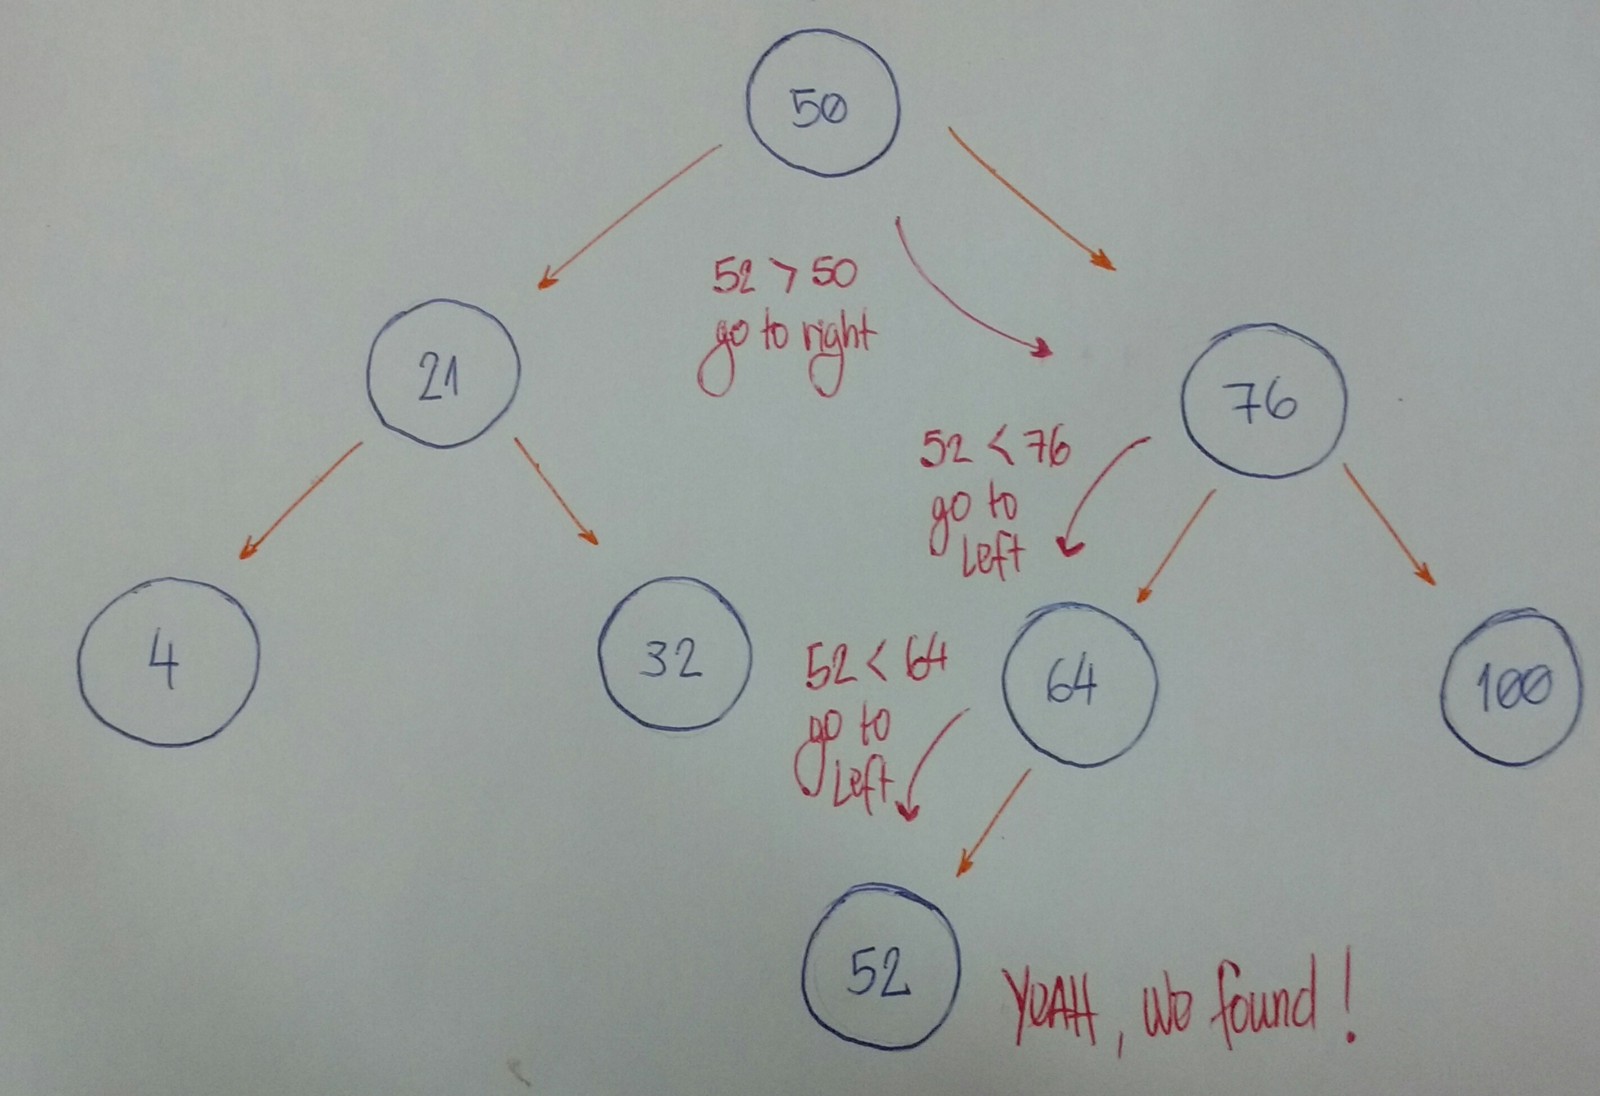 50
52 > 50
go to right
21
76
52 < 76
go to
Left
4
32
52 < 64
go to
Left
64
100
52
YeAH, we found!